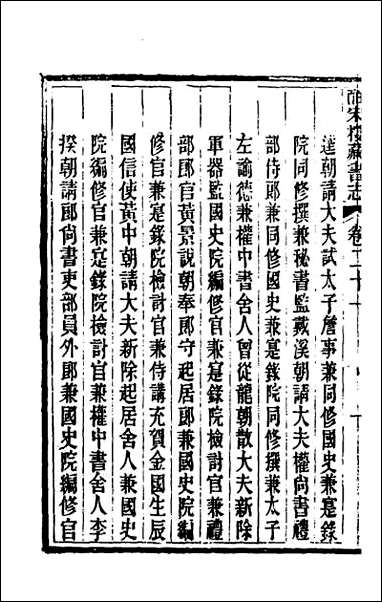 皕宋樓藏書志 卷二十一
達朝請大夫試太子詹事兼同修國史兼寔錄
院同修撰兼秘書監戴溪朝請大夫權尙書禮
部侍郎兼同修國史兼寔錄院同修撰兼太子
左諭德兼權中書舍人曾從龍朝散大夫新除
軍器監國史院編修官兼寔錄院檢討官兼禮
部郎官黃景說朝奉郎守起居郎兼國史院編
修官兼寔錄院檢討官兼侍講充賀金國生辰
國信使黃中朝請大夫新除起居舍人兼國史
院編修官兼寔錄院檢討官兼權中書舍人李
揆朝請郎尙書吏部員外郎兼國史院編修官